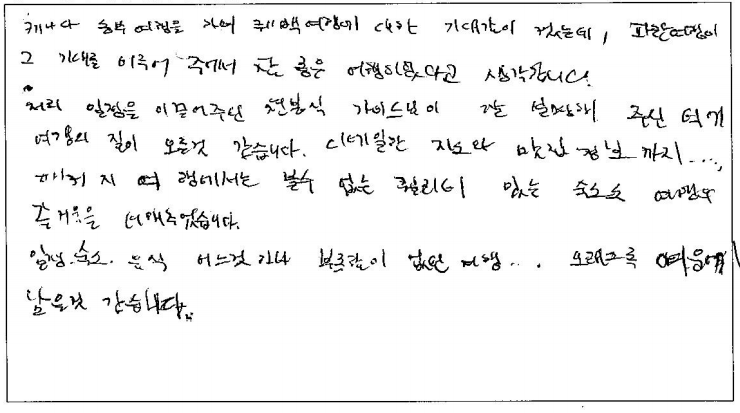 캐나다 동부 여행을 가며 퀘백여행에 대한 기대감이 컸는데, 파란여행이
그 기대를 이루어 주어서 참 좋은 여행이었다고 생각합니다.
저희 일정을 이끌어주신 천봉식 가이드님이 잘 설명해 주신 덕에
여행의 질이 오른것 같습니다. 디테일한 지도와 맛집 정보 까지....,
패키지 여행에서는 볼수 없는 퀄리티 있는 숙소도 여행의
즐거움을 더해주었습니다.
일정.숙소.음식 어느것 하나 부족함이 없던 여행... 오래도록 마음에
남을것 같습니다..